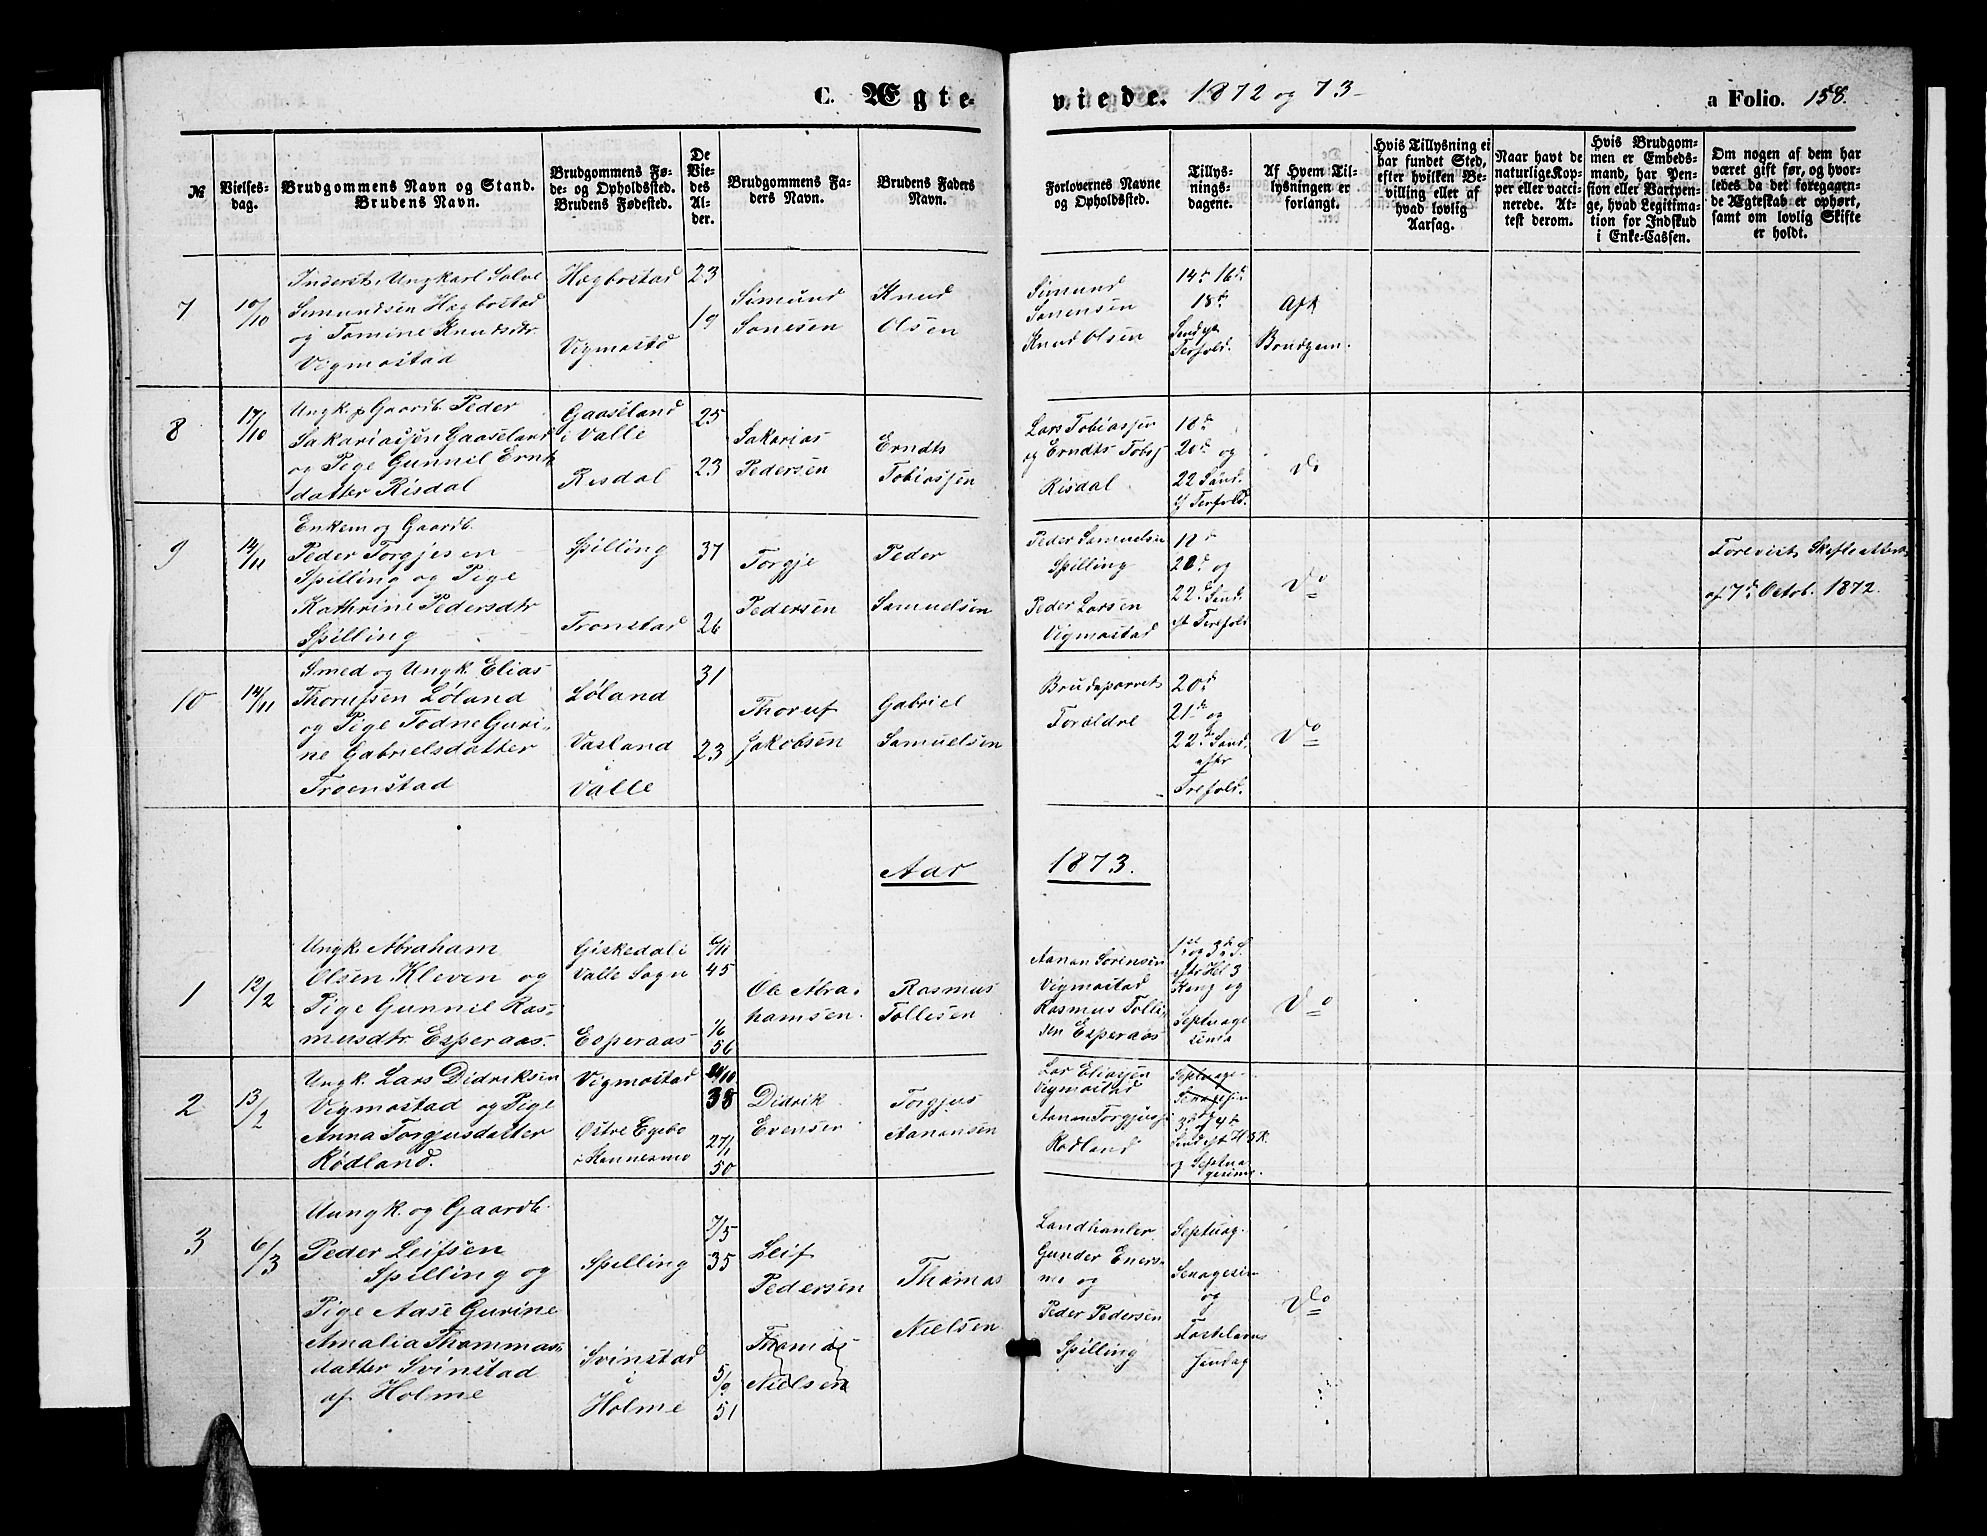 C. Ægte-
viede. 1872 og 73-
a Folio. 158.
№
Vielses-
dag.
Brudgommens Navn og Stand.
Brudens Navn.
Brudgommens Fø-
de- og Opholdssted.
Brudens Fødested.
De
Vie-
des
Al-
der.
Brudgommens Fa-
ders Navn.
Brudens Faders
Navn.
Forlovernes Navne
og Opholdssted.
Tillys-
nings-
dagene.
Af Hvem Til-
lysningen er
forlangt.
Hvis Tillysning ei
har fundet Sted,
efter hvilken Be-
villing eller af
hvad lovlig
Aarsag.
Naar havt de
naturlige Kop-
per eller vacci-
nerede. At-
test derom.
Hvis Brudgom-
men er Embeds-
mand, har Pen-
sion eller Vartpen-
ge, hvad Legitima-
tion for Indskud
i Enke-Cassen.
Om nogen af dem har
været gift før, og hvor-
ledes da det foregaaen-
de Ægteskab er ophørt,
samt om lovlig Skifte
er holdt.
7
10/10
Inderst, Ungkarl Salve
Simundsen Hægbostad
og Tomine Knudsdtr
Vigmostad
Hægbostad
Vigmostd
23
19
Simund
Sonesen
Knud
Olsen
Simund
Sonensen
Knud Olsen
14d 16d
18d
Sndge
Terfold.
Aft
Brudgom.
8
17/10
Ungk. og Gaardb. Peder
Sakariassen Gaaseland
og Pige Gunnil Ernts
datter Risdal
Gaaseland
i Valle
Risdal
25
23
Sakarias
Pedersen
Erndts
Tobiassen
Lars Tobiassen
og Erndts Tobsj
Risdal
18d
20d og
22 Sønd.
e/ Terfold.
do
9
14/11
Enkem og Gaardb.
Peder Torgjesen
Spilling og Pige
Kathrine Pedersdtr
Spilling
Spilling
Tronstad
37
26
Torgje
Pedersen
Peder
Samuelsen
Peder Samuelsen
Spilling
Peder Larsen
Vigmostad
18d
20d og
22d Sønd.
eft Terefold
do
Forevist Skifteattest
af 7d Octob. 1872.
10
14/11
Smed og Ungk. Elias
Thorufsen Løland
og Pige Todne Guri-
ne Gabrielsdatter
Troenstad
Løland
Vasland
i
Valle
31
23
Thoruf
Jakobsen
Gabriel
Samuelsen
Brudeparrets
Foraldre
20d
21d og
22d Sønd.
efter
Trefold.
do
Aar 1873.
1
12/2
Ungk. Abraham
Olsen Kleven og
Pige Gunnil Ras-
musdtr Esperaas.
Giskedal i
Valle Sogn
Esperaas
6/11
45
1/6
56
Ole Abra-
hamsen
Rasmus
Tollisen
Aanon Sørensen
Vigmostad
Rasmus Tolli-
sen Esperaas
1ste og 3d S.
eftr Hel 3
Kong og
Septuage
sima
do
2
13/2
Ungk. Lars Didriksen
Vigmostad og Pige
Anna Torgjusdatter
Rødland.
Vigmostad
Østre Egebø
i Hannesmo
38
27/1
50
Didrik
Evensen
Torgjus
Aanonsen
Lar Eliassen
Vigmostad
Aanon Torgjussj
Rødland
3d og 4d
Sønd eft H 3 K.
og Septua
gesima.
3
6/3
Uungk. og Gaardb.
Peder Leifsen
Spilling og
Pige Aase Gurine
Amalia Thommas-
datter Svinstad
af Holme
Spilling
Svinstad
i
Holme
7/5
35
5/9
51
Leif
Pedersen
Thomas
Nielsen
Thomas
Nielsen
Landhanler
Gunder Eners-
mo og
Peder Pedersen
Spilling
Septuag-
Sexagesim
og
Fastelavns
Søndag
do